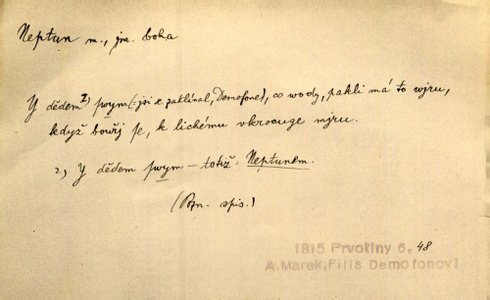 Neptun m., jm. boha
Y dědem 2) swym (:jsi se zaklínal, Demofone), co wody, pakli má to wjru,
když bowřj se, k lichému vkrocuge mjru.
2) Y dědem swym – totiž: Neptunem.
(Pozn. spis.)
1815 Prvotiny 6, 48
A. Marek, Filis Demofonovi